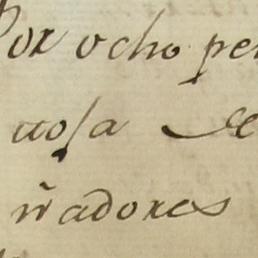 Por ocho pe
uosa de
ñadores